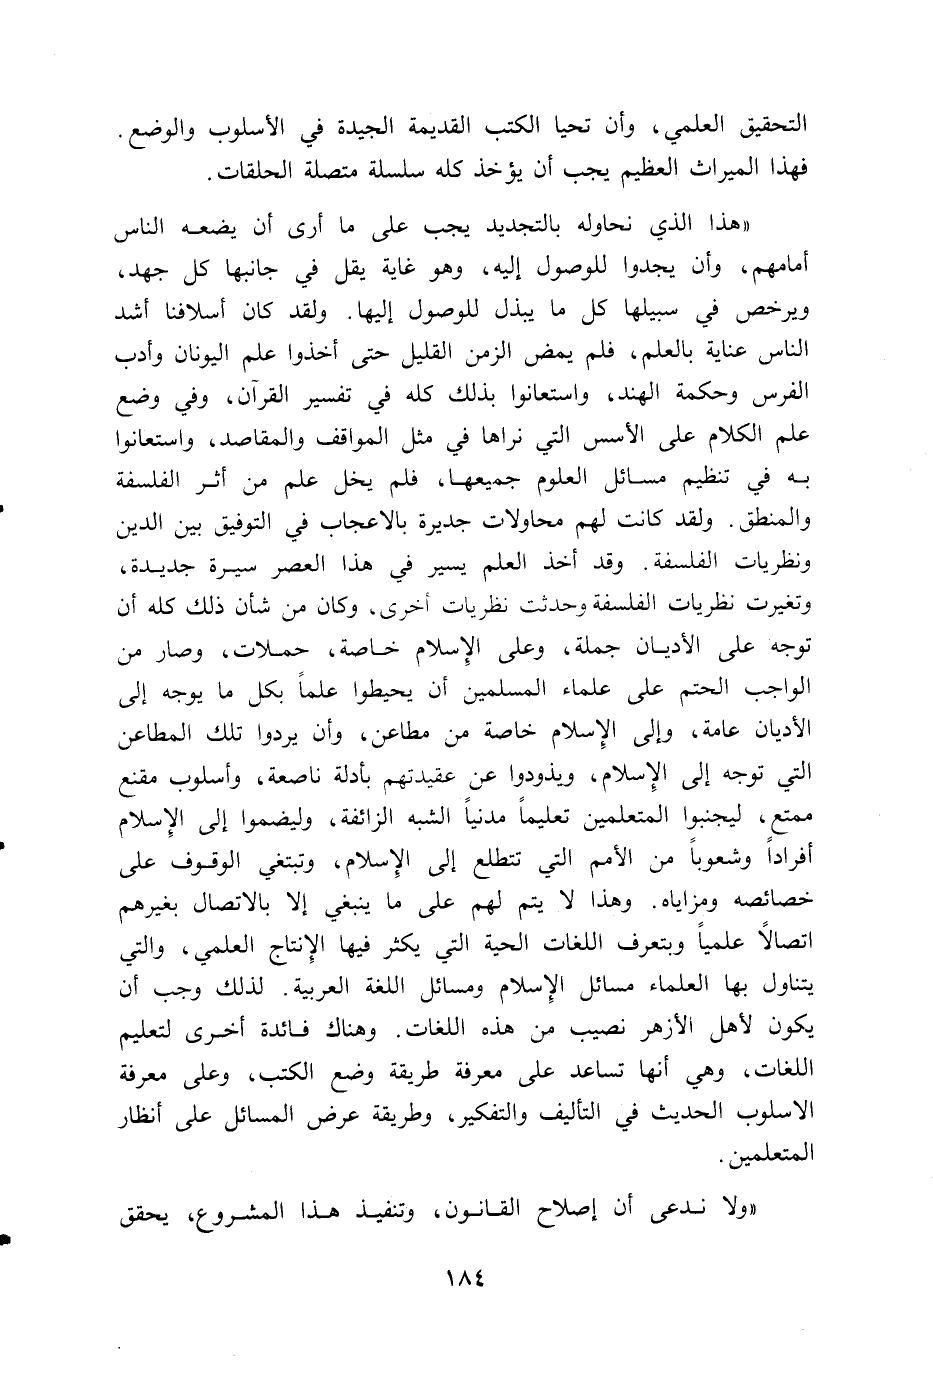 التحقيق العلمي، وأن تحيا الكتب القديمة الجيدة في الأسلوب والوضع.
فهذا الميراث العظيم يجب أن يؤخذ كله سلسلة متصلة الحلقات.
«هذا الذي نحاوله بالتجديد يجب على ما أرى أن يضعه الناس
أمامهم، وأن يجدوا للوصول إليه، وهو غاية يقل في جانبها كل جهد،
ويرخص في سبيلها كل ما يبذل للوصول إليها. ولقد كان أسلافنا أشد
الناس عناية بالعلم، فلم يمض الزمن القليل حتى أخذوا علم اليونان وأدب
الفرس وحكمة الهند، واستعانوا بذلك كله في تفسير القرآن، وفي وضع
علم الكلام على الأسس التي نراها في مثل المواقف والمقاصد، واستعانوا
به في تنظيم مسائل العلوم جميعها، فلم يخل علم من أثر الفلسفة
والمنطق. ولقد كانت لهم محاولات جديرة بالاعجاب في التوفيق بين الدين
ونظريات الفلسفة. وقد أخذ العلم يسير في هذا العصر سيرة جديدة،
وتغيرت نظريات الفلسفة وحدثت نظريات أخرى، وكان من شأن ذلك كله أن
توجه على الأديان جملة، وعلى الإسلام خاصة، حملات، وصار من
الواجب الحتم على علماء المسلمين أن يحيطوا علماً بكل ما يوجه إلى
الأديان عامة، وإلى الإسلام خاصة من مطاعن، وأن يردوا تلك المطاعن
التي توجه إلى الإسلام، ويذودوا عن عقيدتهم بأدلة ناصعة، وأسلوب مقنع
ممتع، ليجنبوا المتعلمين تعليماً مدنياً الشبه الزائفة، وليضموا إلى الإسلام
أفراداً وشعوباً من الأمم التي تتطلع إلى الإسلام، وتبتغي الوقوف على
خصائصه ومزاياه. وهذا لا يتم لهم على ما ينبغي إلا بالاتصال بغيرهم
اتصالاً علمياً وبتعرف اللغات الحية التي يكثر فيها الإنتاج العلمي، والتي
يتناول بها العلماء مسائل الإسلام ومسائل اللغة العربية. لذلك وجب أن
يكون لأهل الأزهر نصيب من هذه اللغات. وهناك فائدة أخرى لتعليم
اللغات، وهي أنها تساعد على معرفة طريقة وضع الكتب، وعلى معرفة
الاسلوب الحديث في التأليف والتفكير، وطريقة عرض المسائل على أنظار
المتعلمين.
«ولا ندعى أن إصلاح القانون، وتنفيذ هذا المشروع، يحقق
١٨٤